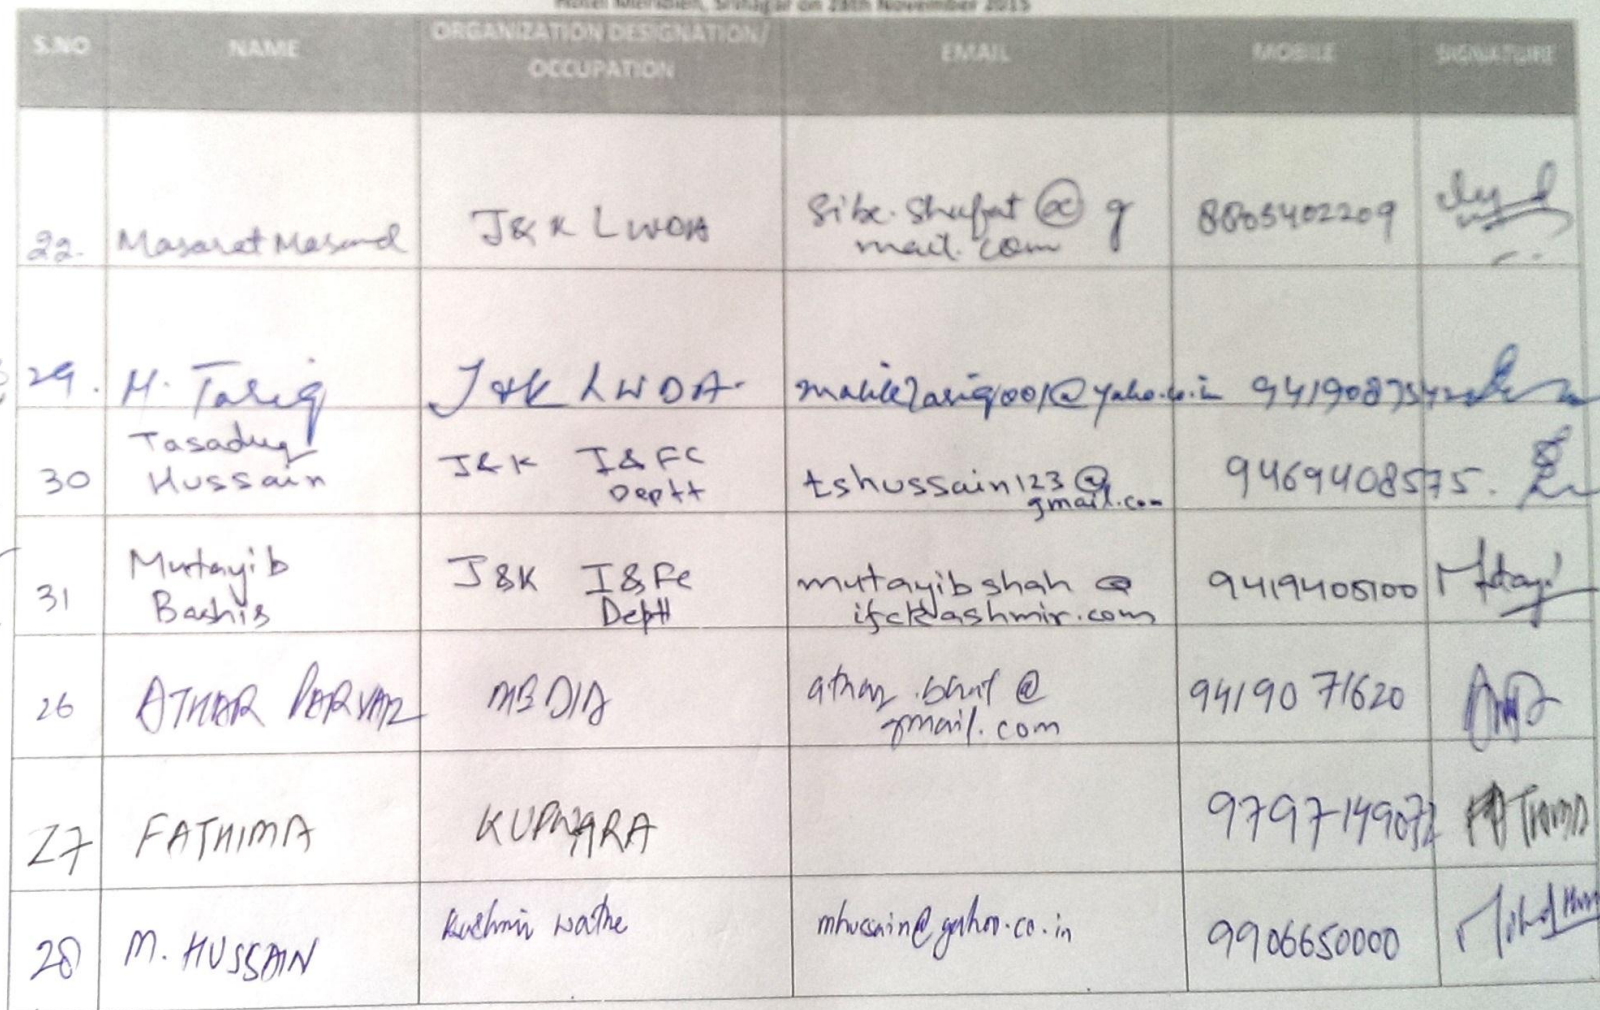 Hotel Meridien, Srinagar on 28th November 2015
S.NO NAME ORGANIZATION DESIGNATION/ OCCUPATION EMAIL MOBILE SIGNATURE
22. Masarat Masoud J&K LWDA @ g mail.com 8803402209
29. M. Tariq J&K LWDA. maliktariq001@yaho.co.in
30 Tasaduq Hussain J&K I&FC Deptt tshussain123@gmail.com 9469408575.
31 Mutayib Bashir J&K I&FC Deptt mutayibshah@ifckashmir.com 9419405100
26 ATHAR PARVAIZ MEDIA athar.bhat@gmail.com 9419071620
27 FATHIMA KUPWARA 9797149072 FATHIMA
28 M. HUSSAIN mhussain@yahoo.co.in 9906650000